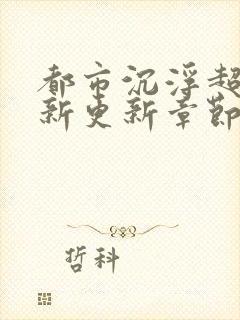 都市沉浮超
新更新章節
哲科